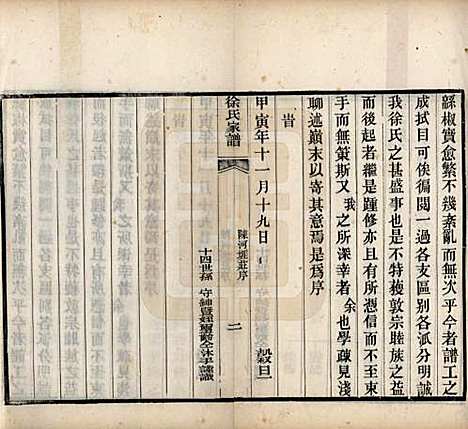 繇椒實愈繁不幾紊亂而無次乎今者譜工之
成拭目可俟徧閱一過各支區别各派分明誠
我徐氏之甚盛事也是不特獲敦宗睦族之益
而後起者繼是踵修亦且有所憑信而不至束
手而無策斯又我之所深幸者余也學疎見淺
聊述巔末以寄其意焉是爲序
旹
甲寅年十一月十九日
徐氏家譜
陳河堐莊序
二
十四世孫
穀旦